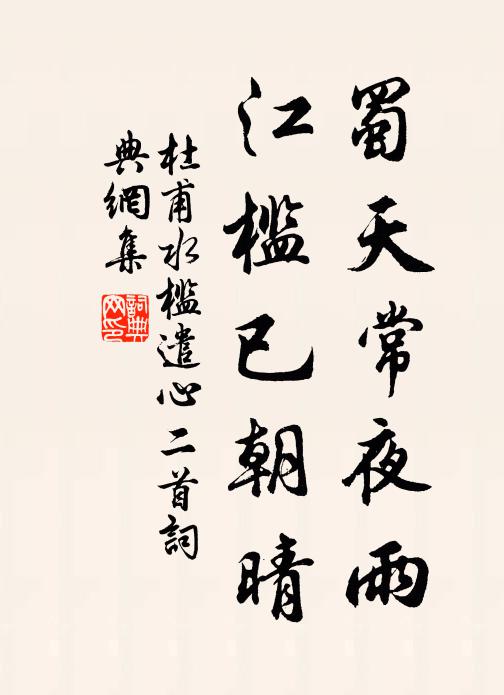 蜀天常夜雨
江檻已朝晴
杜甫水檻遣心二首詞
典網集
詞典
网印